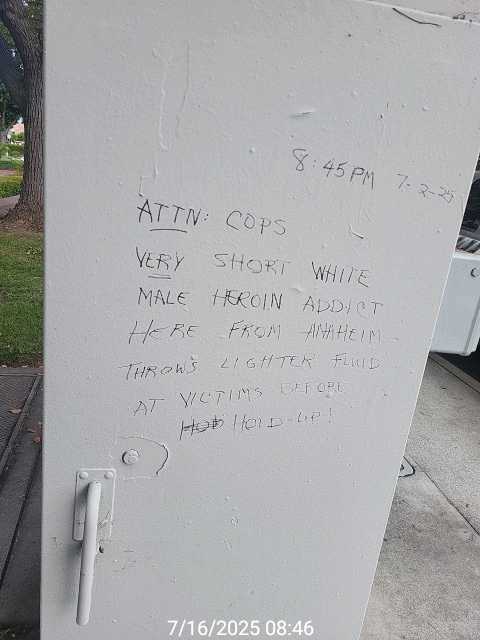 8:45PM 7-2-25
ATTN: COPS
VERY SHORT WHITE
MALE HEROIN ADDICT
HERE FROM ANAHEIM
THROWS LIGHTER FLUID
AT VICTIMS BEFORE
HOLD-UP!
7/16/2025 08:46